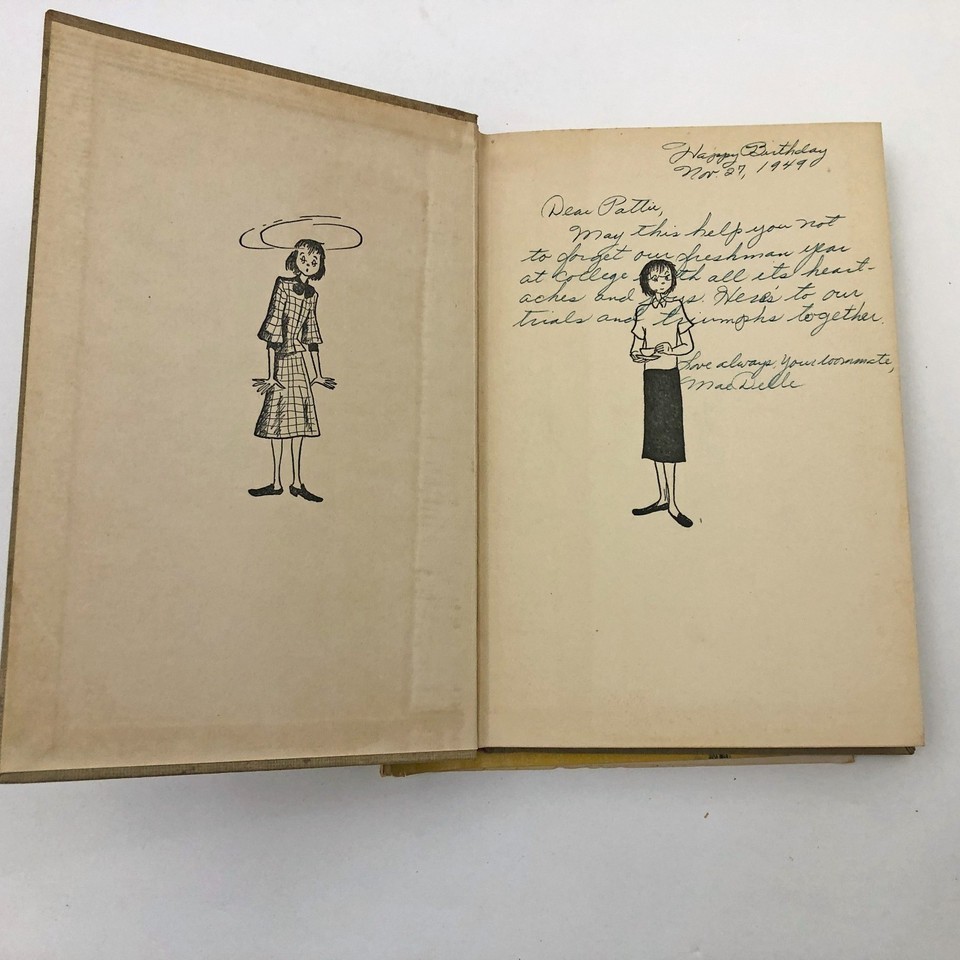 Happy Birthday
Nov. 27, 1949
Dear Pattie,
May this help you not
to forget our freshman year
at College with all its heart-
aches and joys. Here's to our
trials and triumphs together.
Love always, Your roommate,